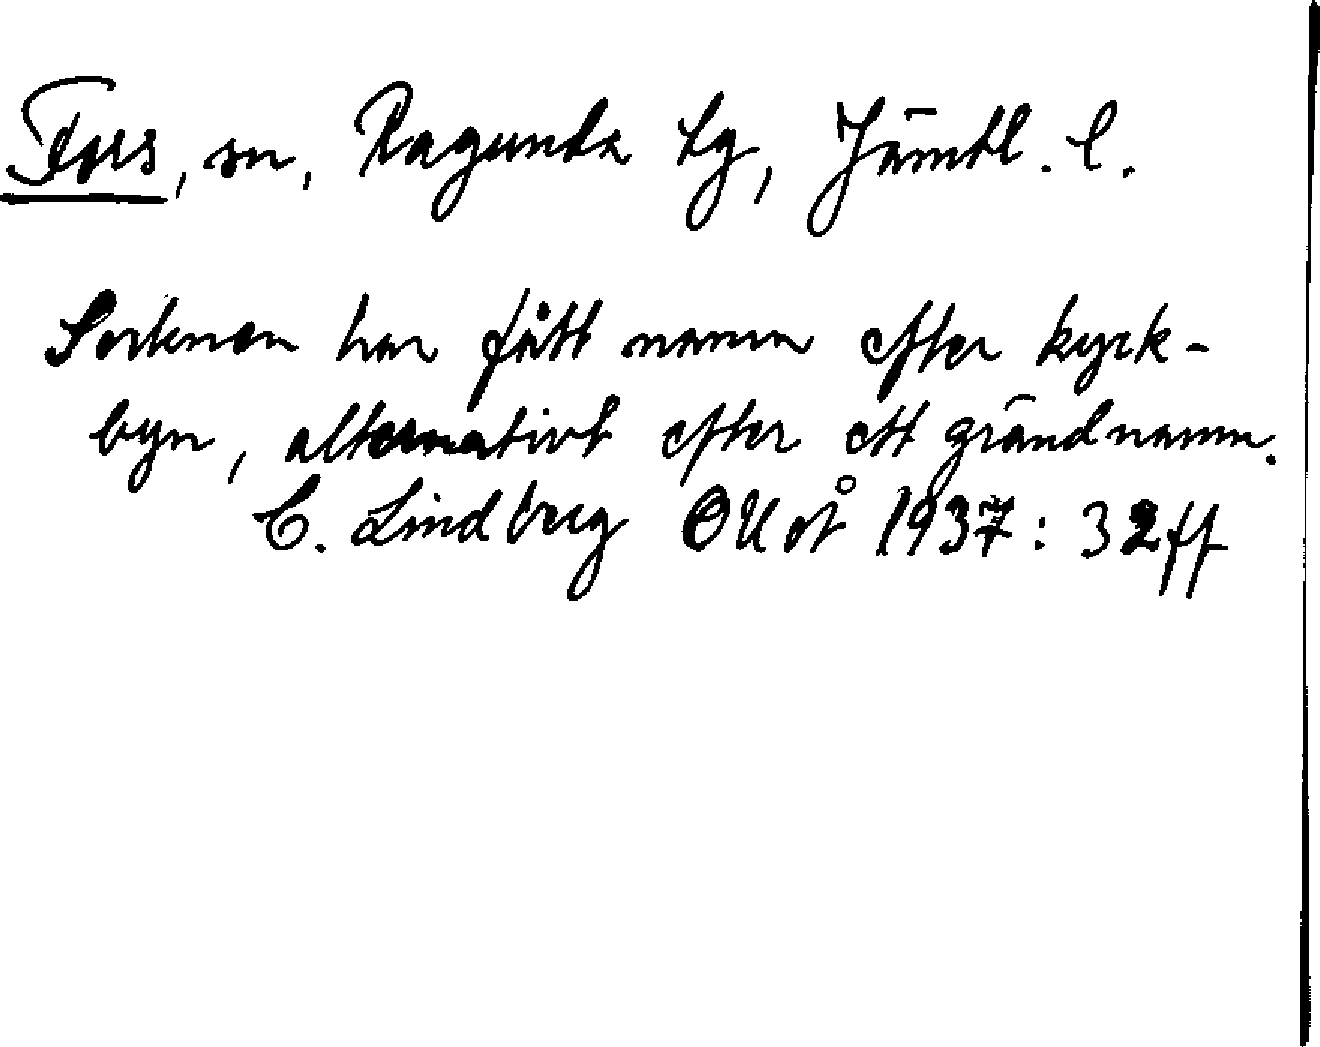 Fors, sn, Ragunda tg, Jämtl. l.
Socknen har fått namn efter kyrk-
byn, alternativt efter ett grändnamn.
C. Lindberg OUoÅ 1937: 32ff